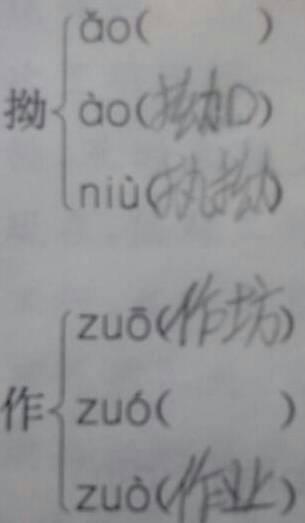 拗
ǎo(    )
ào(拗口)
niù(执拗)
作
zuō(作坊)
zuó(    )
zuò(作业)